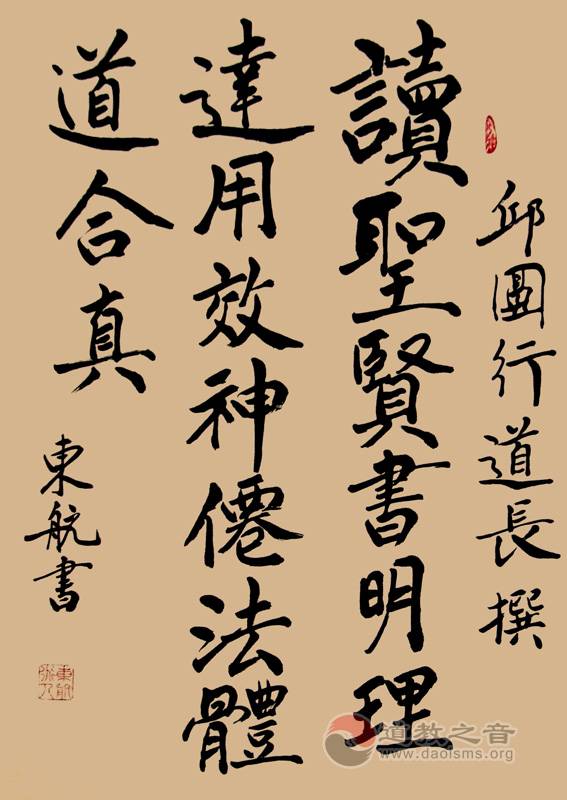 邱圖行道長撰
讀聖賢書明理
達用效神僊法體
道合真
東航書
道教之音
www.daoisms.org